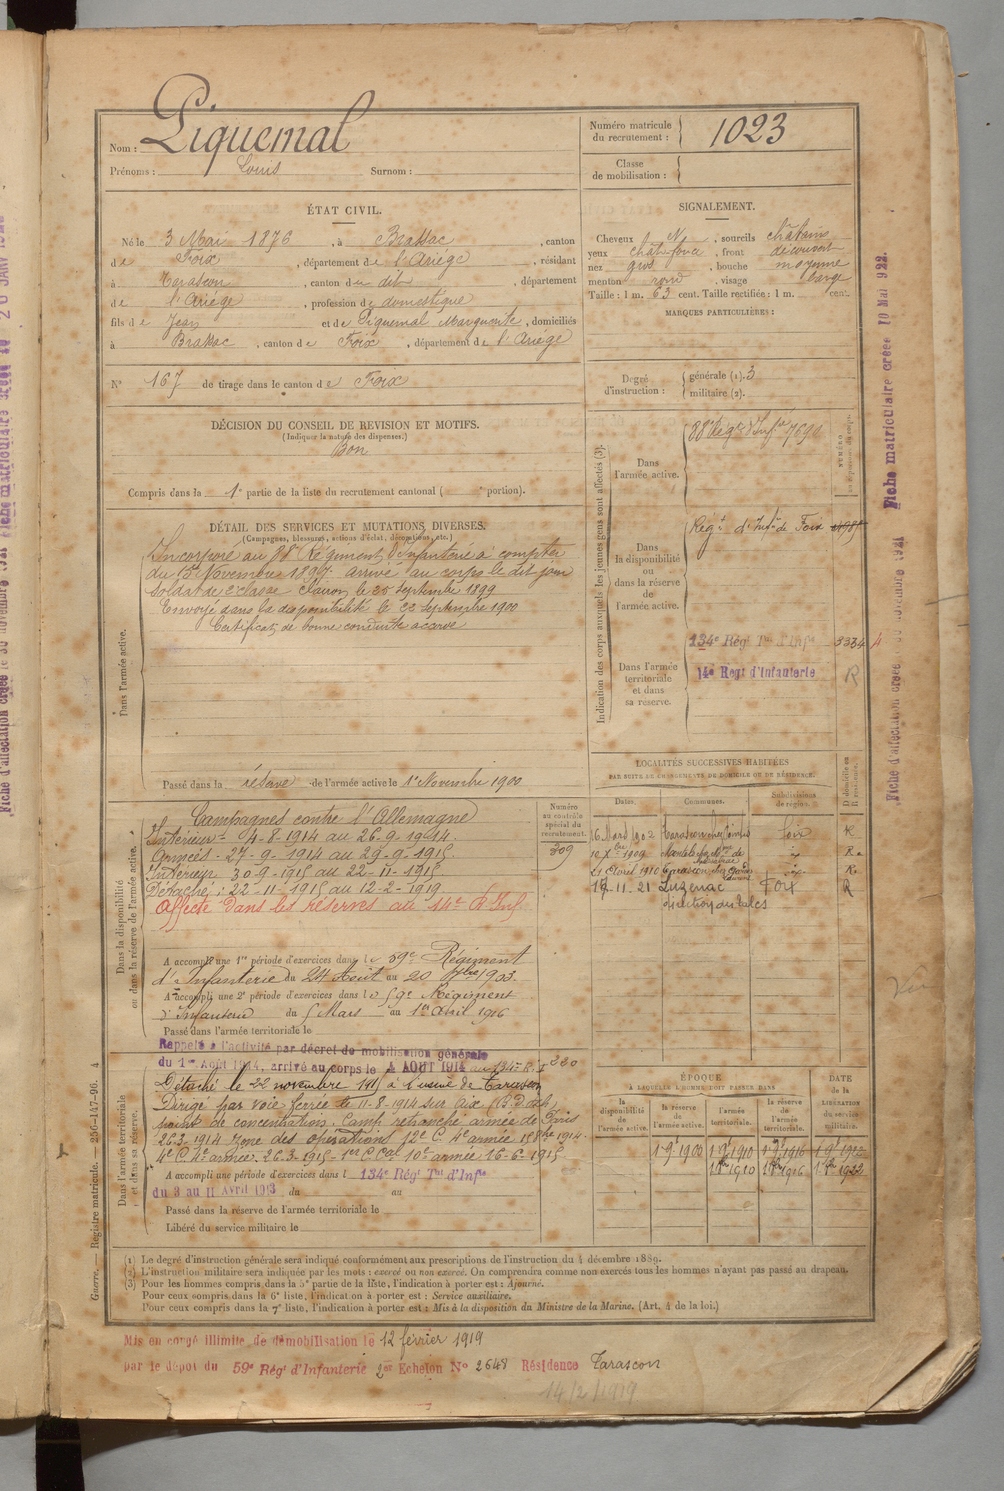 Nom : Piquemal
Prénoms : Louis Surnom :
Numéro matricule du recrutement : 1023
Classe de mobilisation :
ÉTAT CIVIL.
Né le 3 Mai 1876, à Brassac, canton
de Foix, département de l'Ariège, résidant
à Tarascon, canton du dit, département
de l'Ariège, profession de domestique
fils de Jean et de Piquemal Marguerite, domiciliés
à Brassac, canton de Foix, département de l'Ariège
N° 167 de tirage dans le canton de Foix
SIGNALEMENT.
Cheveux N, sourcils châtains
yeux chât. foncé, front découvert
nez gros, bouche moyenne
menton rond, visage large
Taille : 1 m. 63 cent. Taille rectifiée : 1 m. cent.
MARQUES PARTICULIÈRES :
Degré d'instruction : générale (1). 3
militaire (2).
DÉCISION DU CONSEIL DE REVISION ET MOTIFS.
(Indiquer la nature des dispenses.)
Bon
Compris dans la 1e partie de la liste du recrutement cantonal ( portion).
DÉTAIL DES SERVICES ET MUTATIONS DIVERSES.
(Campagnes, blessures, actions d'éclat, décorations, etc.)
Dans l'armée active.
Incorporé au 88e Régiment d'Infanterie à compter
du 15 Novembre 1897 arrivé au corps le dit jour
soldat de 2e classe Clairon le 25 septembre 1899
Envoyé dans la disponibilité le 22 septembre 1900
Certificat de bonne conduite accordé
Passé dans la réserve de l'armée active le 1er Novembre 1900
Indication des corps auxquels les jeunes gens sont affectés (3).
Dans l'armée active.
88e Régt d'Infie 7690
Dans la disponibilité ou dans la réserve de l'armée active.
Régt d'Infie de Foix
Dans l'armée territoriale et dans sa réserve.
134e Rég Tal d'Infie 3334
14e Regt d'Infanterie R
LOCALITÉS SUCCESSIVES HABITÉES
PAR SUITE DE CHANGEMENTS DE DOMICILE OU DE RÉSIDENCE.
Dates. Communes. Subdivisions de région. D domicile ou R résidence.
16 Mars 1902 Tarascon Foix R
1909 R.
21 Avril 1910 Tarascon R
17-11-21 Luzenac Foix R
direction des talcs
Dans la disponibilité ou dans la réserve de l'armée active.
Numéro au contrôle spécial du recrutement.
309
Campagnes contre l'Allemagne
Intérieur - 4-8-1914 au 26-9-1914.
Armées - 27-9-1914 au 29-9-1915.
Intérieur 30-9-1915 au 22-11-1915
Détaché : 22-11-1915 au 12-2-1919
Affecté dans les réserves au 14e R. Inf.
A accompli une 1re période d'exercices dans le 59e Régiment
d'Infanterie du 24 Août au 20 7bre 1903.
A accompli une 2e période d'exercices dans le 59e Régiment
d'Infanterie du 5 Mars au 1er Avril 1906
Passé dans l'armée territoriale le
Dans l'armée territoriale et dans sa réserve.
Rappelé à l'activité par décret de mobilisation générale
du 1er Août 1914, arrivé au corps le 4 AOUT 1914 au 134e R.I 220
Détaché le 22 novembre 1915 à l'usine de Tarascon
Dirigé par voie ferrée le 11-8-1914 sur Aix (B.d.R.)
point de concentration. Camp retranché armée de Paris
26.3.1914 zone des opérations 12e C. 4e armée
4e armée. 26.3.1915 - 10e armée 16-6-1915
A accompli une période d'exercices dans le 134e Rég Tal d'Infie
du 3 au 11 Avril 1913 du au
Passé dans la réserve de l'armée territoriale le
Libéré du service militaire le
ÉPOQUE À LAQUELLE L'HOMME DOIT PASSER DANS
la disponibilité de l'armée active. la réserve de l'armée active. l'armée territoriale. la réserve de l'armée territoriale.
DATE de la LIBÉRATION du service militaire.
1 9bre 1900 1 9bre 1910 1 9bre 1916 1 9bre 1922
1 8bre 1910 1 8bre 1916 1 8bre 1922
(1) Le degré d'instruction générale sera indiqué conformément aux prescriptions de l'instruction du 4 décembre 1889.
(2) L'instruction militaire sera indiquée par les mots : exercé ou non exercé. On comprendra comme non exercés tous les hommes n'ayant pas passé au drapeau.
(3) Pour les hommes compris dans la 5e partie de la liste, l'indication à porter est : Ajourné.
Pour ceux compris dans la 6e liste, l'indication à porter est : Service auxiliaire.
Pour ceux compris dans la 7e liste, l'indication à porter est : Mis à la disposition du Ministre de la Marine. (Art. 4 de la loi.)
Mis en congé illimité de démobilisation le 12 février 1919
par le dépôt du 59e Rég' d'Infanterie 2e Echelon N° 2648 Résidence Tarascon
14/2/1919
Guerre. — Registre matricule. — 256-147-96. 4
Fiche matriculaire créée 10 Mai 922.
Fiche d'affectation créée le 30 novembre 1921